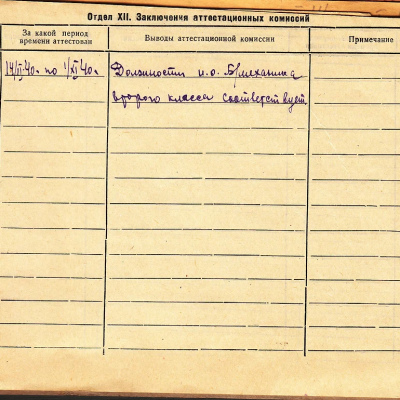 Отдел XII. Заключения аттестационных комиссий
За какой период времени аттестован
Выводы аттестационной комиссии
Примечание
14/II-40г. по 1/XI 40г.
Должности и.о. Б/механика
второго класса соответствует